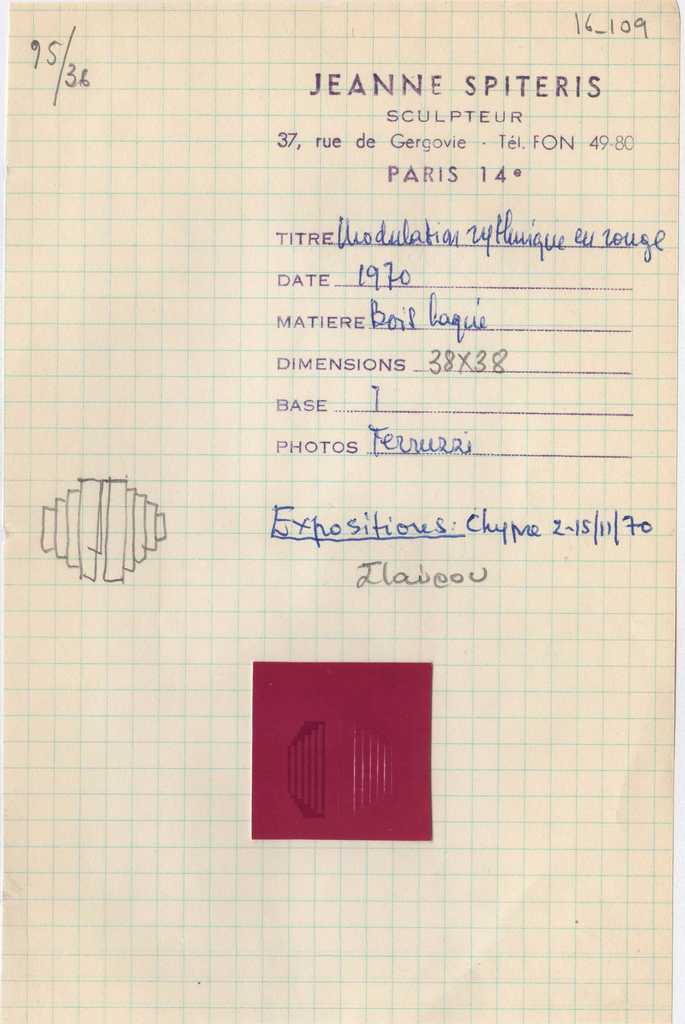 16-109
95/36
JEANNE SPITERIS
SCULPTEUR
37, rue de Gergovie - Tél. FON 49-80
PARIS 14e
TITRE Modulation rythmique en rouge
DATE 1970
MATIERE Bois laqué
DIMENSIONS 38X38
BASE 1
PHOTOS Ferruzzi
Expositions: Chypre 2-15/11/70
Σταύρου